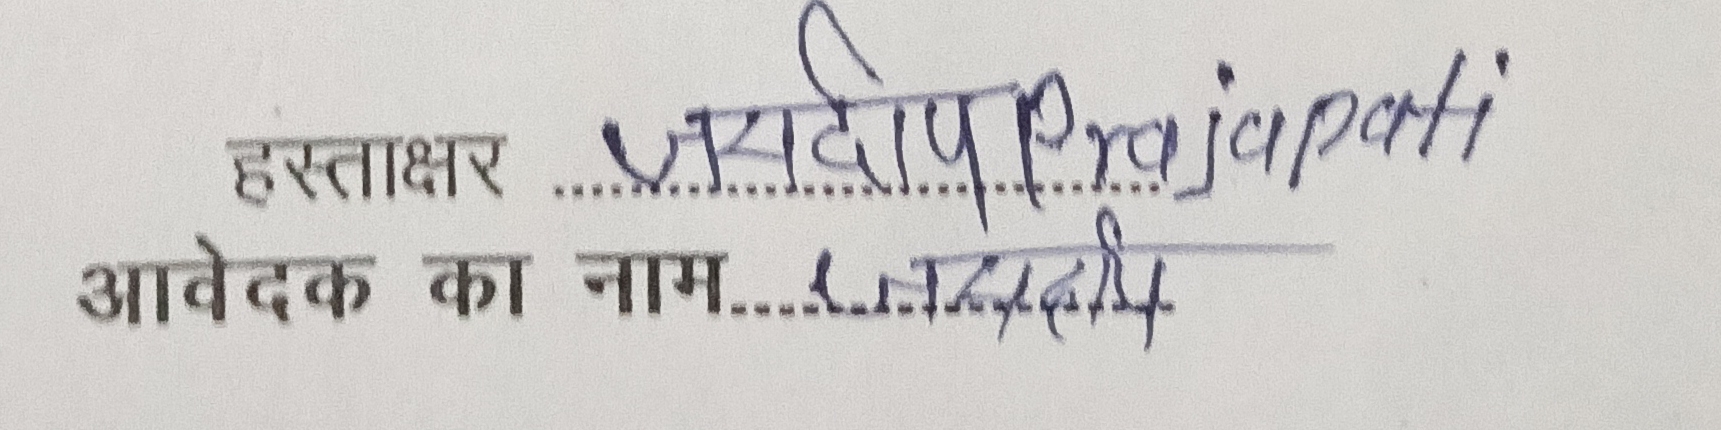 हस्ताक्षर ........ जयदीप Prajapati
आवेदक का नाम........ जयदीप